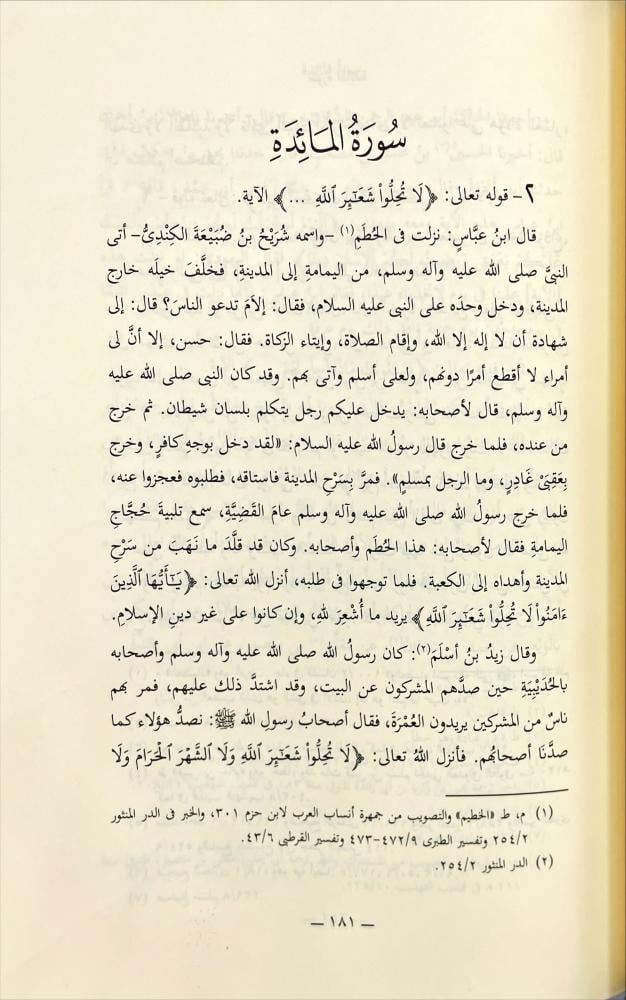 سُورَةُ المَائِدَةِ
٢- قوله تعالى: ﴿لَا تُحِلُّوا۟ شَعَٰٓئِرَ ٱللَّهِ ...﴾ الآية.
قال ابنُ عبَّاسٍ: نزلت فى الحُطَمِ(١) -واسمه شُرَيْحُ بنُ ضُبَيْعَةَ الكِنْدِىُّ- أتى
النبيَّ صلى الله عليه وآله وسلم، من اليمامةِ إلى المدينةِ، فخلَّفَ خيلَه خارج
المدينة، ودخل وحدَه على النبى عليه السلام، فقال: إلاَمَ تدعو الناسَ؟ قال: إلى
شهادة أن لا إله إلا الله، وإقام الصلاة، وإيتاء الزكاة. فقال: حسن، إلا أنَّ لى
أمراء لا أقطع أمرًا دونهم، ولعلى أسلم وآتى بهم. وقد كان النبى صلى الله عليه
وآله وسلم، قال لأصحابه: يدخل عليكم رجل يتكلم بلسان شيطان. ثم خرج
من عنده، فلما خرج قال رسولُ الله عليه السلام: «لقد دخل بوجهِ كافرٍ، وخرج
بِعَقِبَىْ غَادِرٍ، وما الرجل بمسلمٍ». فمرَّ بِسَرْحِ المدينة فاستاقه، فطلبوه فعجزوا عنه،
فلما خرج رسولُ الله صلى الله عليه وآله وسلم عامَ القَضِيَّةِ، سمع تلبيةَ حُجَّاجِ
اليمامةِ فقال لأصحابه: هذا الحُطَم وأصحابه. وكان قد قلَّدَ ما نَهَبَ من سَرْحِ
المدينة وأهداه إلى الكعبة. فلما توجهوا فى طلبه، أنزل الله تعالى: ﴿يَٰٓأَيُّهَا ٱلَّذِينَ
ءَامَنُوا۟ لَا تُحِلُّوا۟ شَعَٰٓئِرَ ٱللَّهِ﴾ يريد ما أُشْعِرَ للهِ، وإن كانوا على غير دينِ الإسلامِ.
وقال زيدُ بنُ أسْلَمَ(٢): كان رسولُ الله صلى الله عليه وآله وسلم وأصحابه
بالحُدَيْبِيَةِ حين صدَّهم المشركون عن البيت، وقد اشتدَّ ذلك عليهم، فمر بهم
ناسٌ من المشركين يريدون العُمْرَةَ، فقال أصحابُ رسولِ الله ﷺ: نصدُّ هؤلاء كما
صدَّنَا أصحابُهم. فأنزل اللهُ تعالى: ﴿لَا تُحِلُّوا۟ شَعَٰٓئِرَ ٱللَّهِ وَلَا ٱلشَّهْرَ ٱلْحَرَامَ وَلَا
(١) م، ط «الخطيم» والتصويب من جمهرة أنساب العرب لابن حزم ٣٠١، والخبر فى الدر المنثور
٢٥٤/٢ وتفسير الطبرى ٤٧٢/٩-٤٧٣ وتفسير القرطبى ٤٣/٦.
(٢) الدر المنثور ٢٥٤/٢.
— ١٨١ —